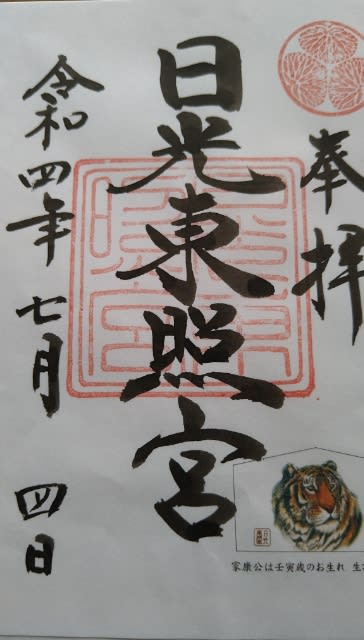 奉拝
日光東照宮
令和四年七月四日
家康公は壬寅歳のお生れ 生